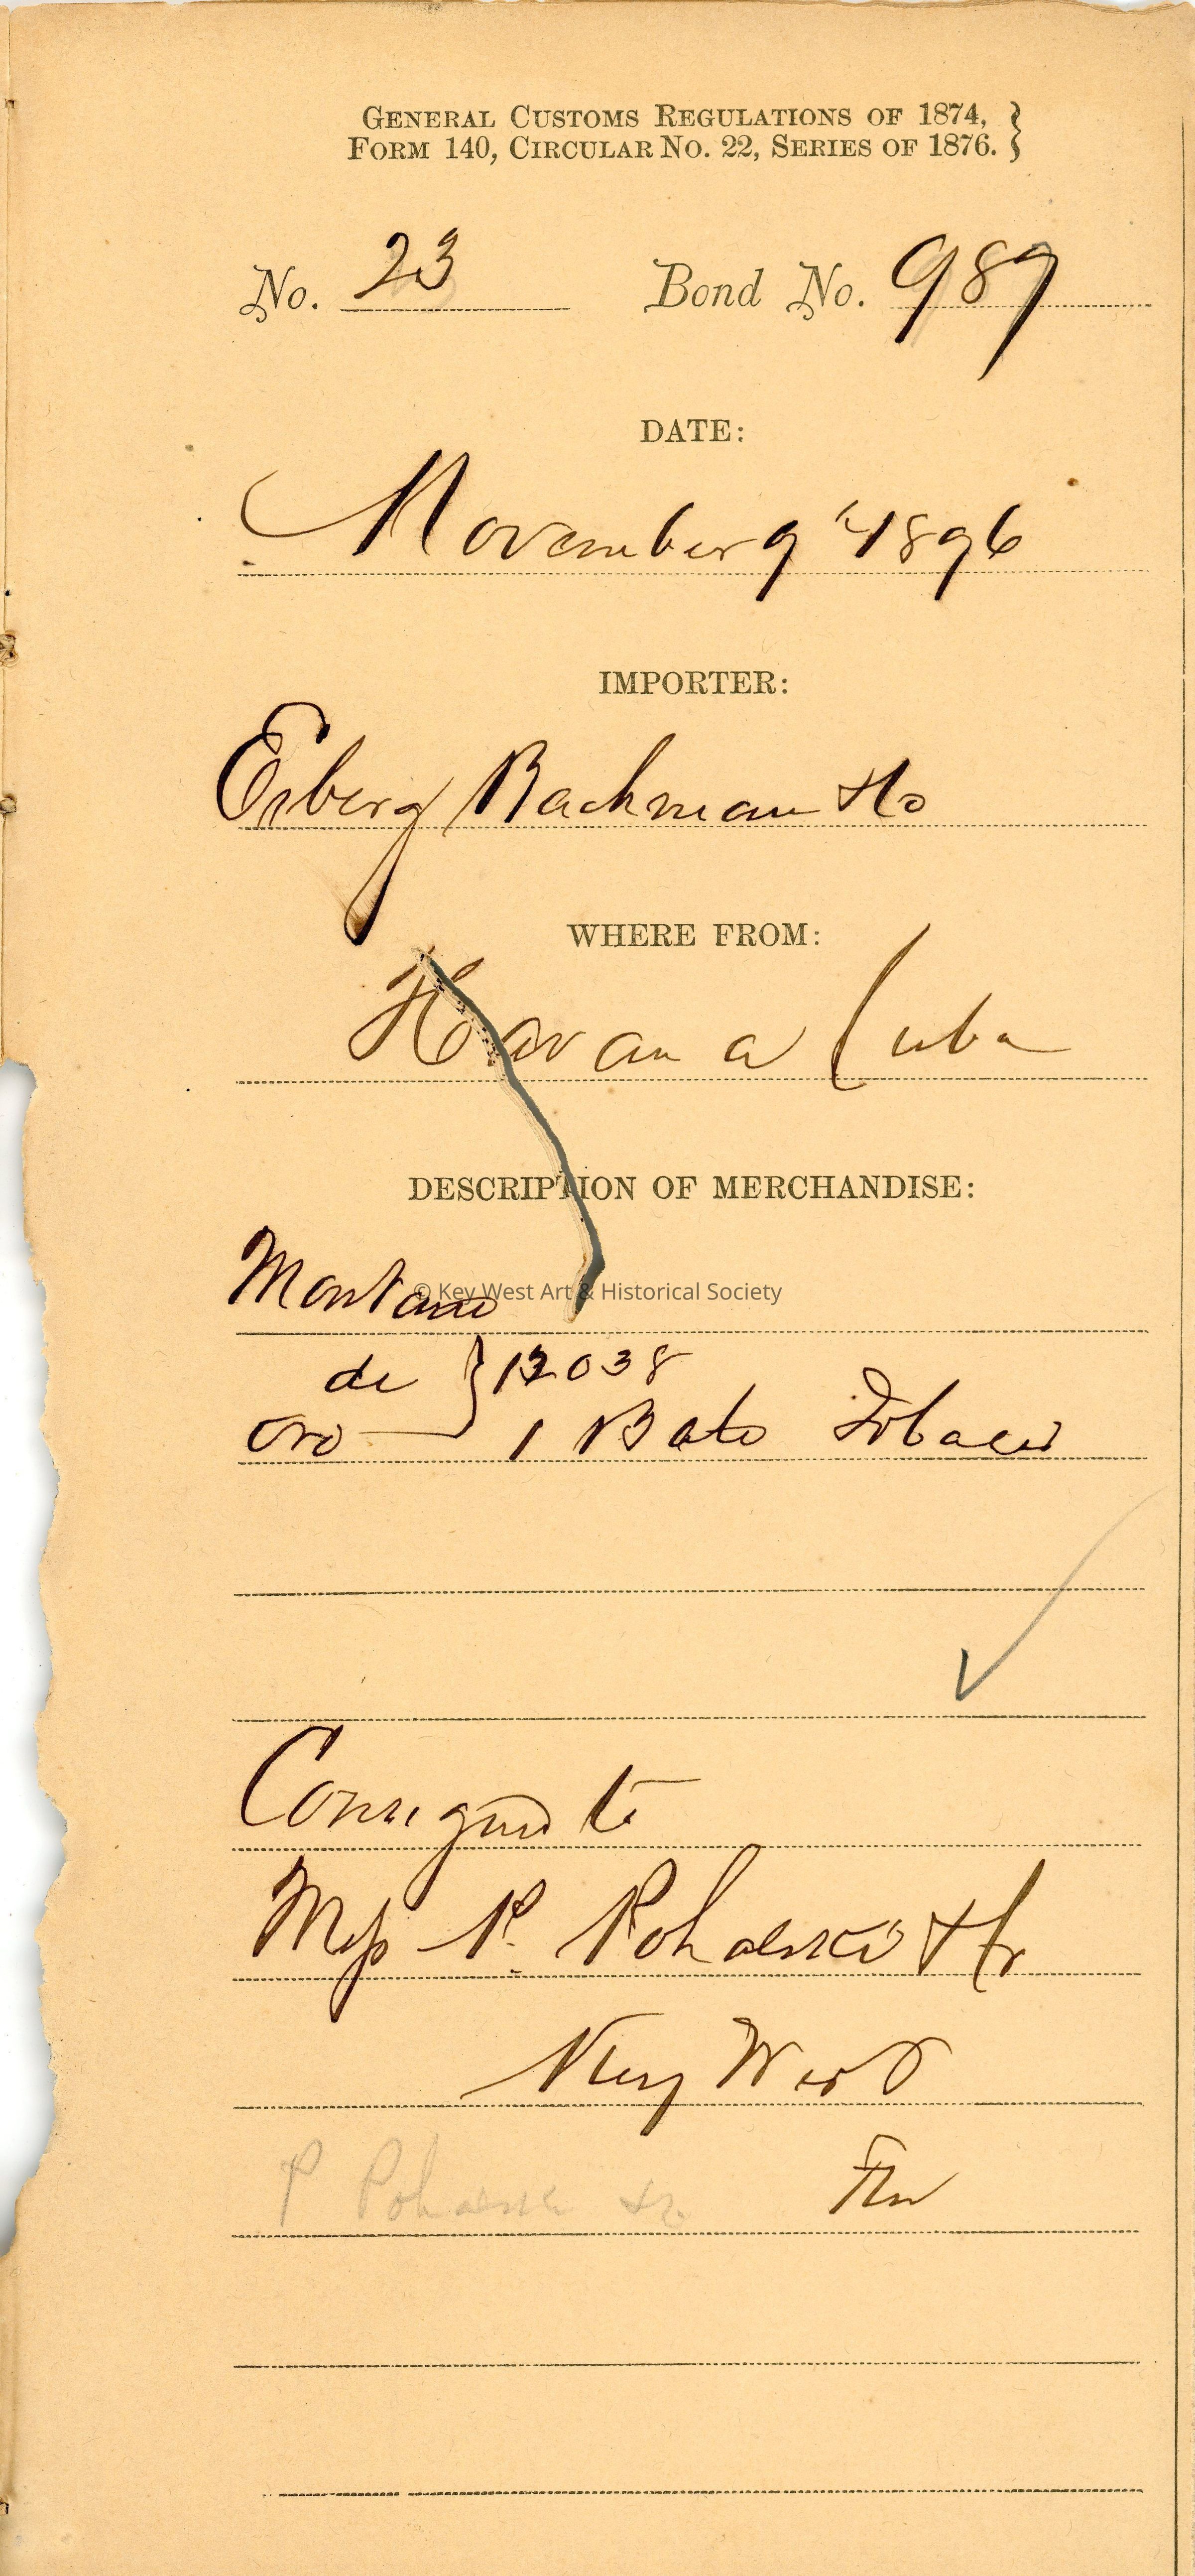 GENERAL CUSTOMS REGULATIONS OF 1874, }
FORM 140, CIRCULAR NO. 22, SERIES OF 1876. }
No. 23 Bond No. 989
DATE:
November 9th 1896
IMPORTER:
Esberg Bachman & Co
WHERE FROM:
Havana Cuba
DESCRIPTION OF MERCHANDISE:
Montano
© Key West Art & Historical Society
de } 12038
oro 1 Bale Tobacco
Consigned to
Mess P. Pohalski & Co
Key West
Fla
P Pohalski & Co